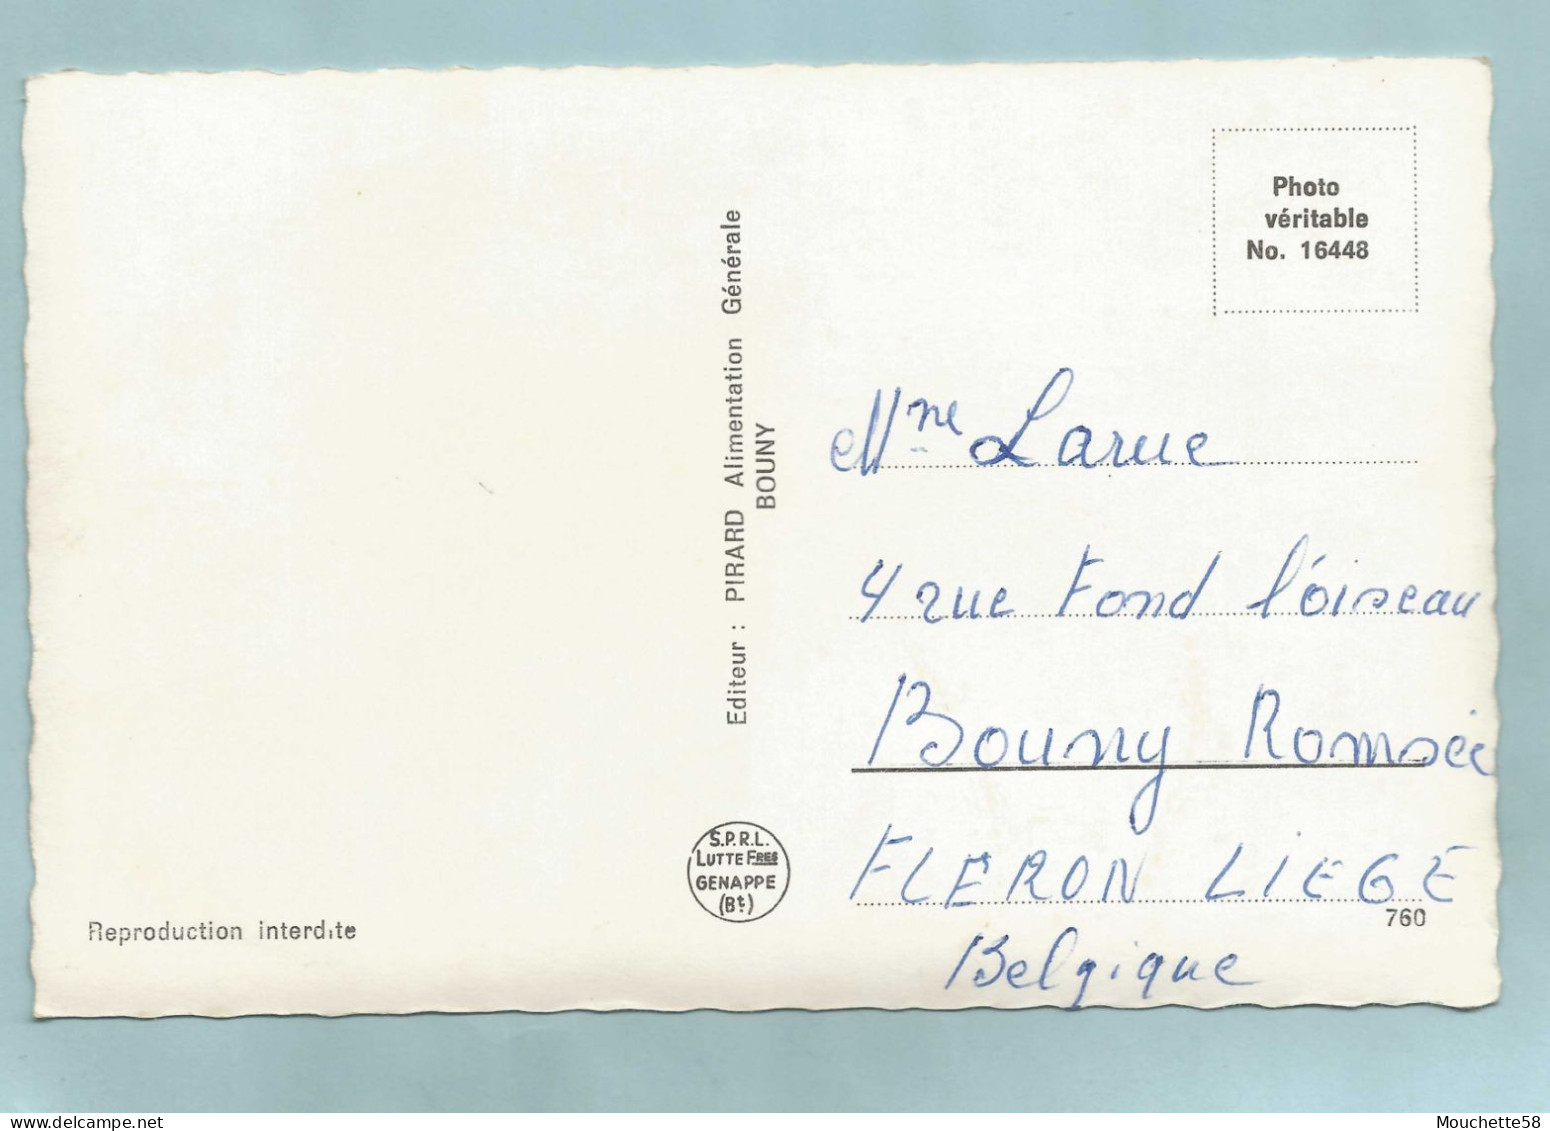 Photo
véritable
No. 16448
Editeur : PIRARD Alimentation Générale
BOUNY
Mme Larue
4 rue Fond l'oiseau
Bouny Romsée
FLERON LIEGE
760
Belgique
S.P.R.L.
LUTTE FRES
GENAPPE
(Bt.)
Reproduction interdite
Mouchette58